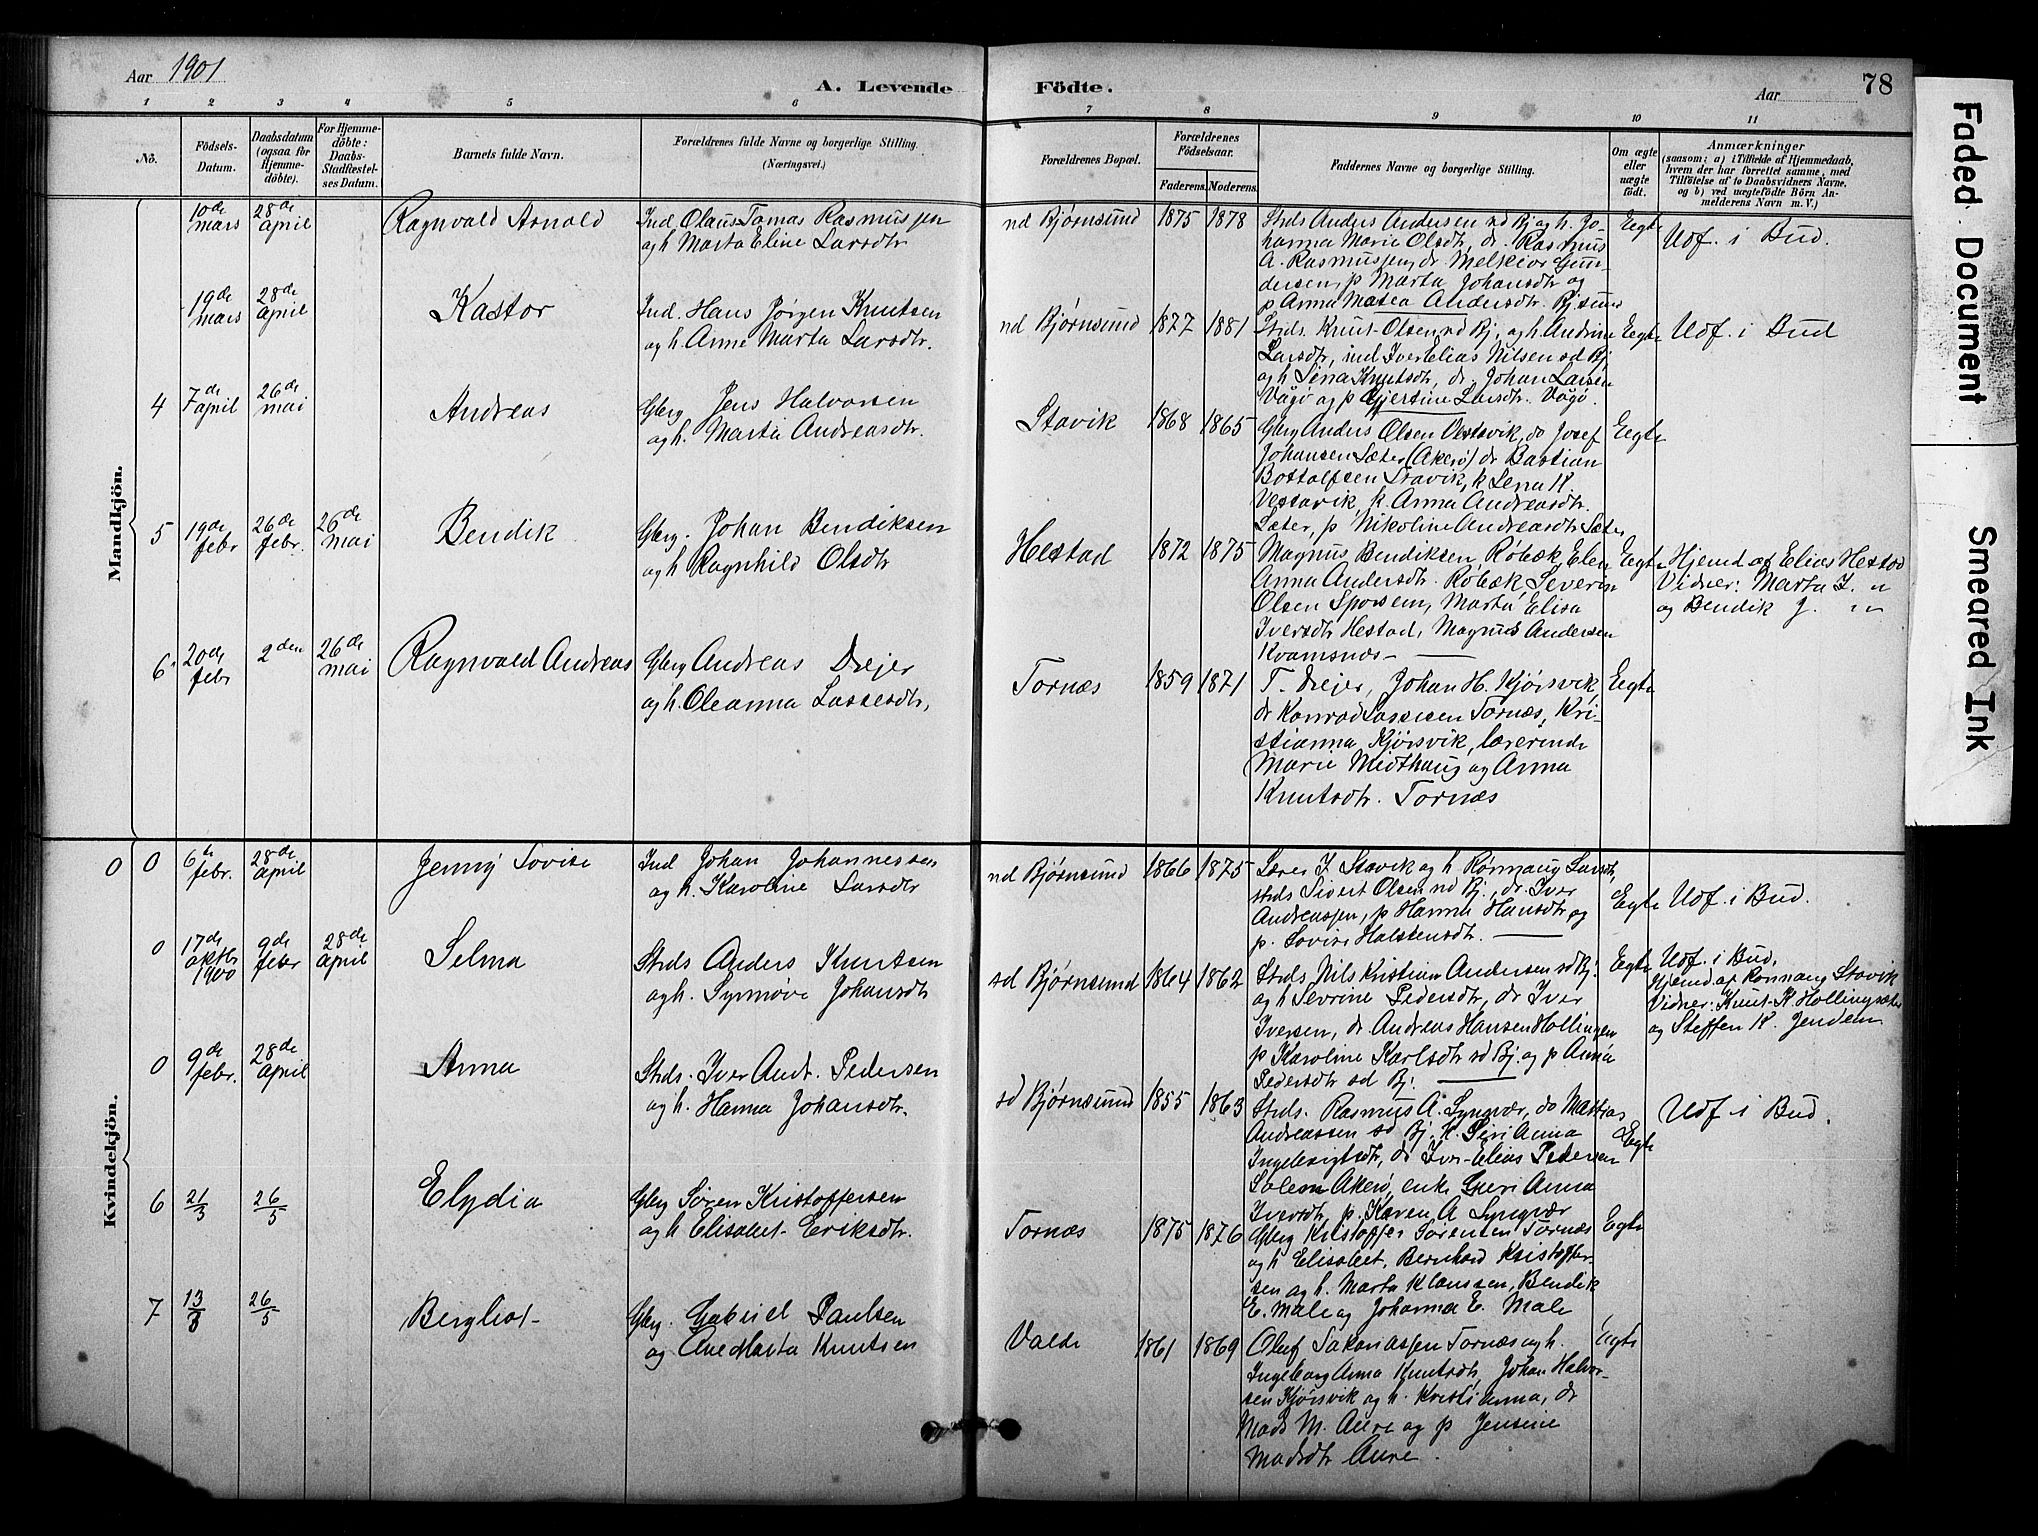 Aar 1901
A. Levende Födte.
Aar
78
1 2 3 4 5 6 7 8 9 10 11
No.
Födsels-Datum.
Daabsdatum (ogsaa for Hjemme-döbte).
For Hjemme-döbte: Daabs-Stadfæstel-ses Datum.
Barnets fulde Navn.
Forældrenes fulde Navne og borgerlige Stilling.
(Næringsvei.)
Forældrenes Bopæl.
Forældrenes Födselsaar.
Faderens. Moderens.
Faddernes Navne og borgerlige Stilling.
Om ægte eller uægte födt.
Anmærkninger
(saasom: a) i Tilfælde af Hjemmedaab, hvem der har forrettet samme, med Tilföielse af to Daabsvidners Navne, og b) ved uægtefödte Börn An-melderens Navn m. V.)
Mandkjön.
10de mars
28de april
Ragnvald Arnold
Ind Olaus Tomas Rasmussen
og h. Marta Eline Larsdtr
nd Bjørnsund
1875 1878
Strds Anders Andersen nd Bj og h. Jo-
hanna Marie Olsdtr, dr. Rasmus
A. Rasmussen, dr Melkior Gun-
dersen, p Marta Johansdtr og
p Anna Matea Andersdtr. Bjsund
Eegte
Udf. i Bud.
19de mars
28de april
Kastor
Ind. Hans Jørgen Knutsen
og h. Anne Marta Larsdtr.
nd Bjørnsund
1877 1881
Strds. Knut Olsen nd Bj. og h. Andrine
Larsdtr, ind Iver Elias Nilsen sd Bj
og h Sena Knutsdtr, dr. Johan Larsen
Vågø og p Gjertine Larsdtr. Vågø.
Eegte
Udf. i Bud
4
7de april
26de mai
Andreas
Gbrg Jens Halvorsen
og h. Marta Andreasdtr.
Stavik
1868 1865
Gbrg Anders Olsen Vestavik, do Josef
Johansen Sæter (Akerø) dr Bastian
Bottolfsen Stavik, k Lena K.
Vestavik, k. Anna Andreasdtr.
Sæter, p Nikoline Andreasdtr Sæter
Eegte
5
19de febr
26de febr.
26de mai
Bendik
Gbrg. Johan Bendiksen
og h Ragnhild Olsdtr
Hestad
1872 1875
Magnus Bendiksen, Røbæk, Elen
Anna Andersdtr. Røbæk, Severin
Olsen Sporsem, Marta Elisa
Iversdtr Hestad, Magnus Andersen
Kvamsnæs
Eegte
Hjemd af Elias Hestad
Vidner: Marta I. "
og Bendik J. "
6
20de febr
2den
26de mai
Ragnvald Andreas
Gbrg Andreas Drejer
og h. Oleanna Lassesdtr,
Tornæs
1859 1871
T. Drejer, Johan H. Kjørsvik,
dr Konrad Lassesen Tornæs, Kri-
stianna Kjørsvik, lærerinde
Marie Midthaug og Anna
Knutsdtr. Tornæs
Eegte
Kvindekjön.
0 0
6te febr.
28de april
Jenny Lovise
Ind Johan Johannessen
og h. Karoline Larsdtr
nd Bjørnsund
1866 1875
Lærer I Stavik og h Rønnaug Larsdtr,
strds Sivert Olsen nd Bj., dr. Iver
Andreassen, p Hanna Hansdtr og
p. Lovise Halstensdtr.
Eegte
Udf. i Bud.
0
17de oktbr 1900
9de febr
28de april
Selma
Strds Anders Knutsen
og h. Synnøve Johansdtr
sd Bjørnsund
1864 1862
Strds Nils Kristian Andersen sd Bj.
og h Sevrine Pedersdtr, dr Iver
Iversen, dr Andreas Hansen Hollingen
p Karoline Karlsdtr sd Bj. og p Anna
Pedersdtr sd Bj.
Eegte
Udf. i Bud,
Hjemd af Rønnaug Stavik
Vidner: Knut K Hollingsæter
og Steffen K. Jendem
0
9de febr.
28de april
Anna
Strds. Iver Andr. Pedersen
og h. Hanna Johansdtr.
sd Bjørnsund
1855 1863
Strds. Rasmus A. Syngvær, do Mattias
Andreassen sd Bj, k. Peri Anna
Ingebrigtsdtr, dr Iver Elias Pedersen
Solem Akerø, enke Guri Anna
Iversdtr p. Karen A Syngvær
Eegte
Udf i Bud.
6
21/3
26/5
Elydia
Gbrg Søren Kristoffersen
og h Elisabet Eriksdtr.
Tornæs
1875 1876
Gbrg Kristoffer Sørensen Tornæs
og h Elisabet, Bernhard Kristoffer-
sen og h. Marta Klaussen, Bendik
E. Male og Johanna E. Male
Eegte
7
13/3
26/5
Bergliot
Gbrg. Gabriel Paulsen
og Ane Marta Knutsen
Valde
1861 1869
Oluf Sakariassen Tornæs og h.
Ingeborg Anna Knutsdtr, Johan Halvor-
sen Kjørsvik og h. Kristianna, dr
Mads M. Aure og p Jensine
Madsdtr Aure.
Eegte
Faded Document
Smeared Ink